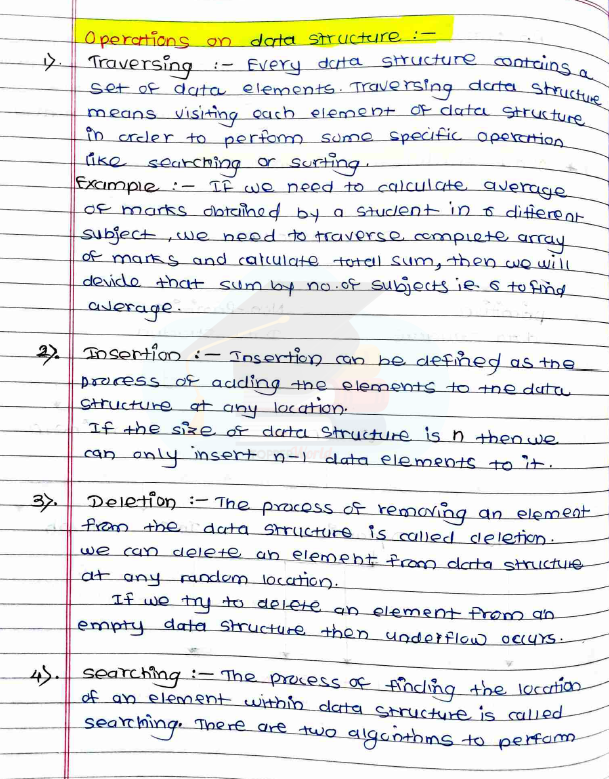 Operations on data structure :-
1). Traversing :- Every data structure contains a
set of data elements. Traversing data structure
means visiting each element of data structure
in order to perform some specific operation
like searching or surting.
Example :- If we need to calculate average
of marks obtained by a student in 6 different
subject, we need to traverse complete array
of marks and calculate total sum, then we will
devide that sum by no. of subjects ie. 6 to find
average.
2). Insertion :- Insertion can be defined as the
process of adding the elements to the data
structure at any location.
If the size of data structure is n then we
can only insert n-1 data elements to it.
3). Deletion :- The process of removing an element
from the data structure is called deletion.
we can delete an element from data structure
at any random location.
If we try to delete an element from an
empty data structure then underflow occurs.
4). searching :- The process of finding the location
of an element within data structure is called
searching. There are two algorithms to perform